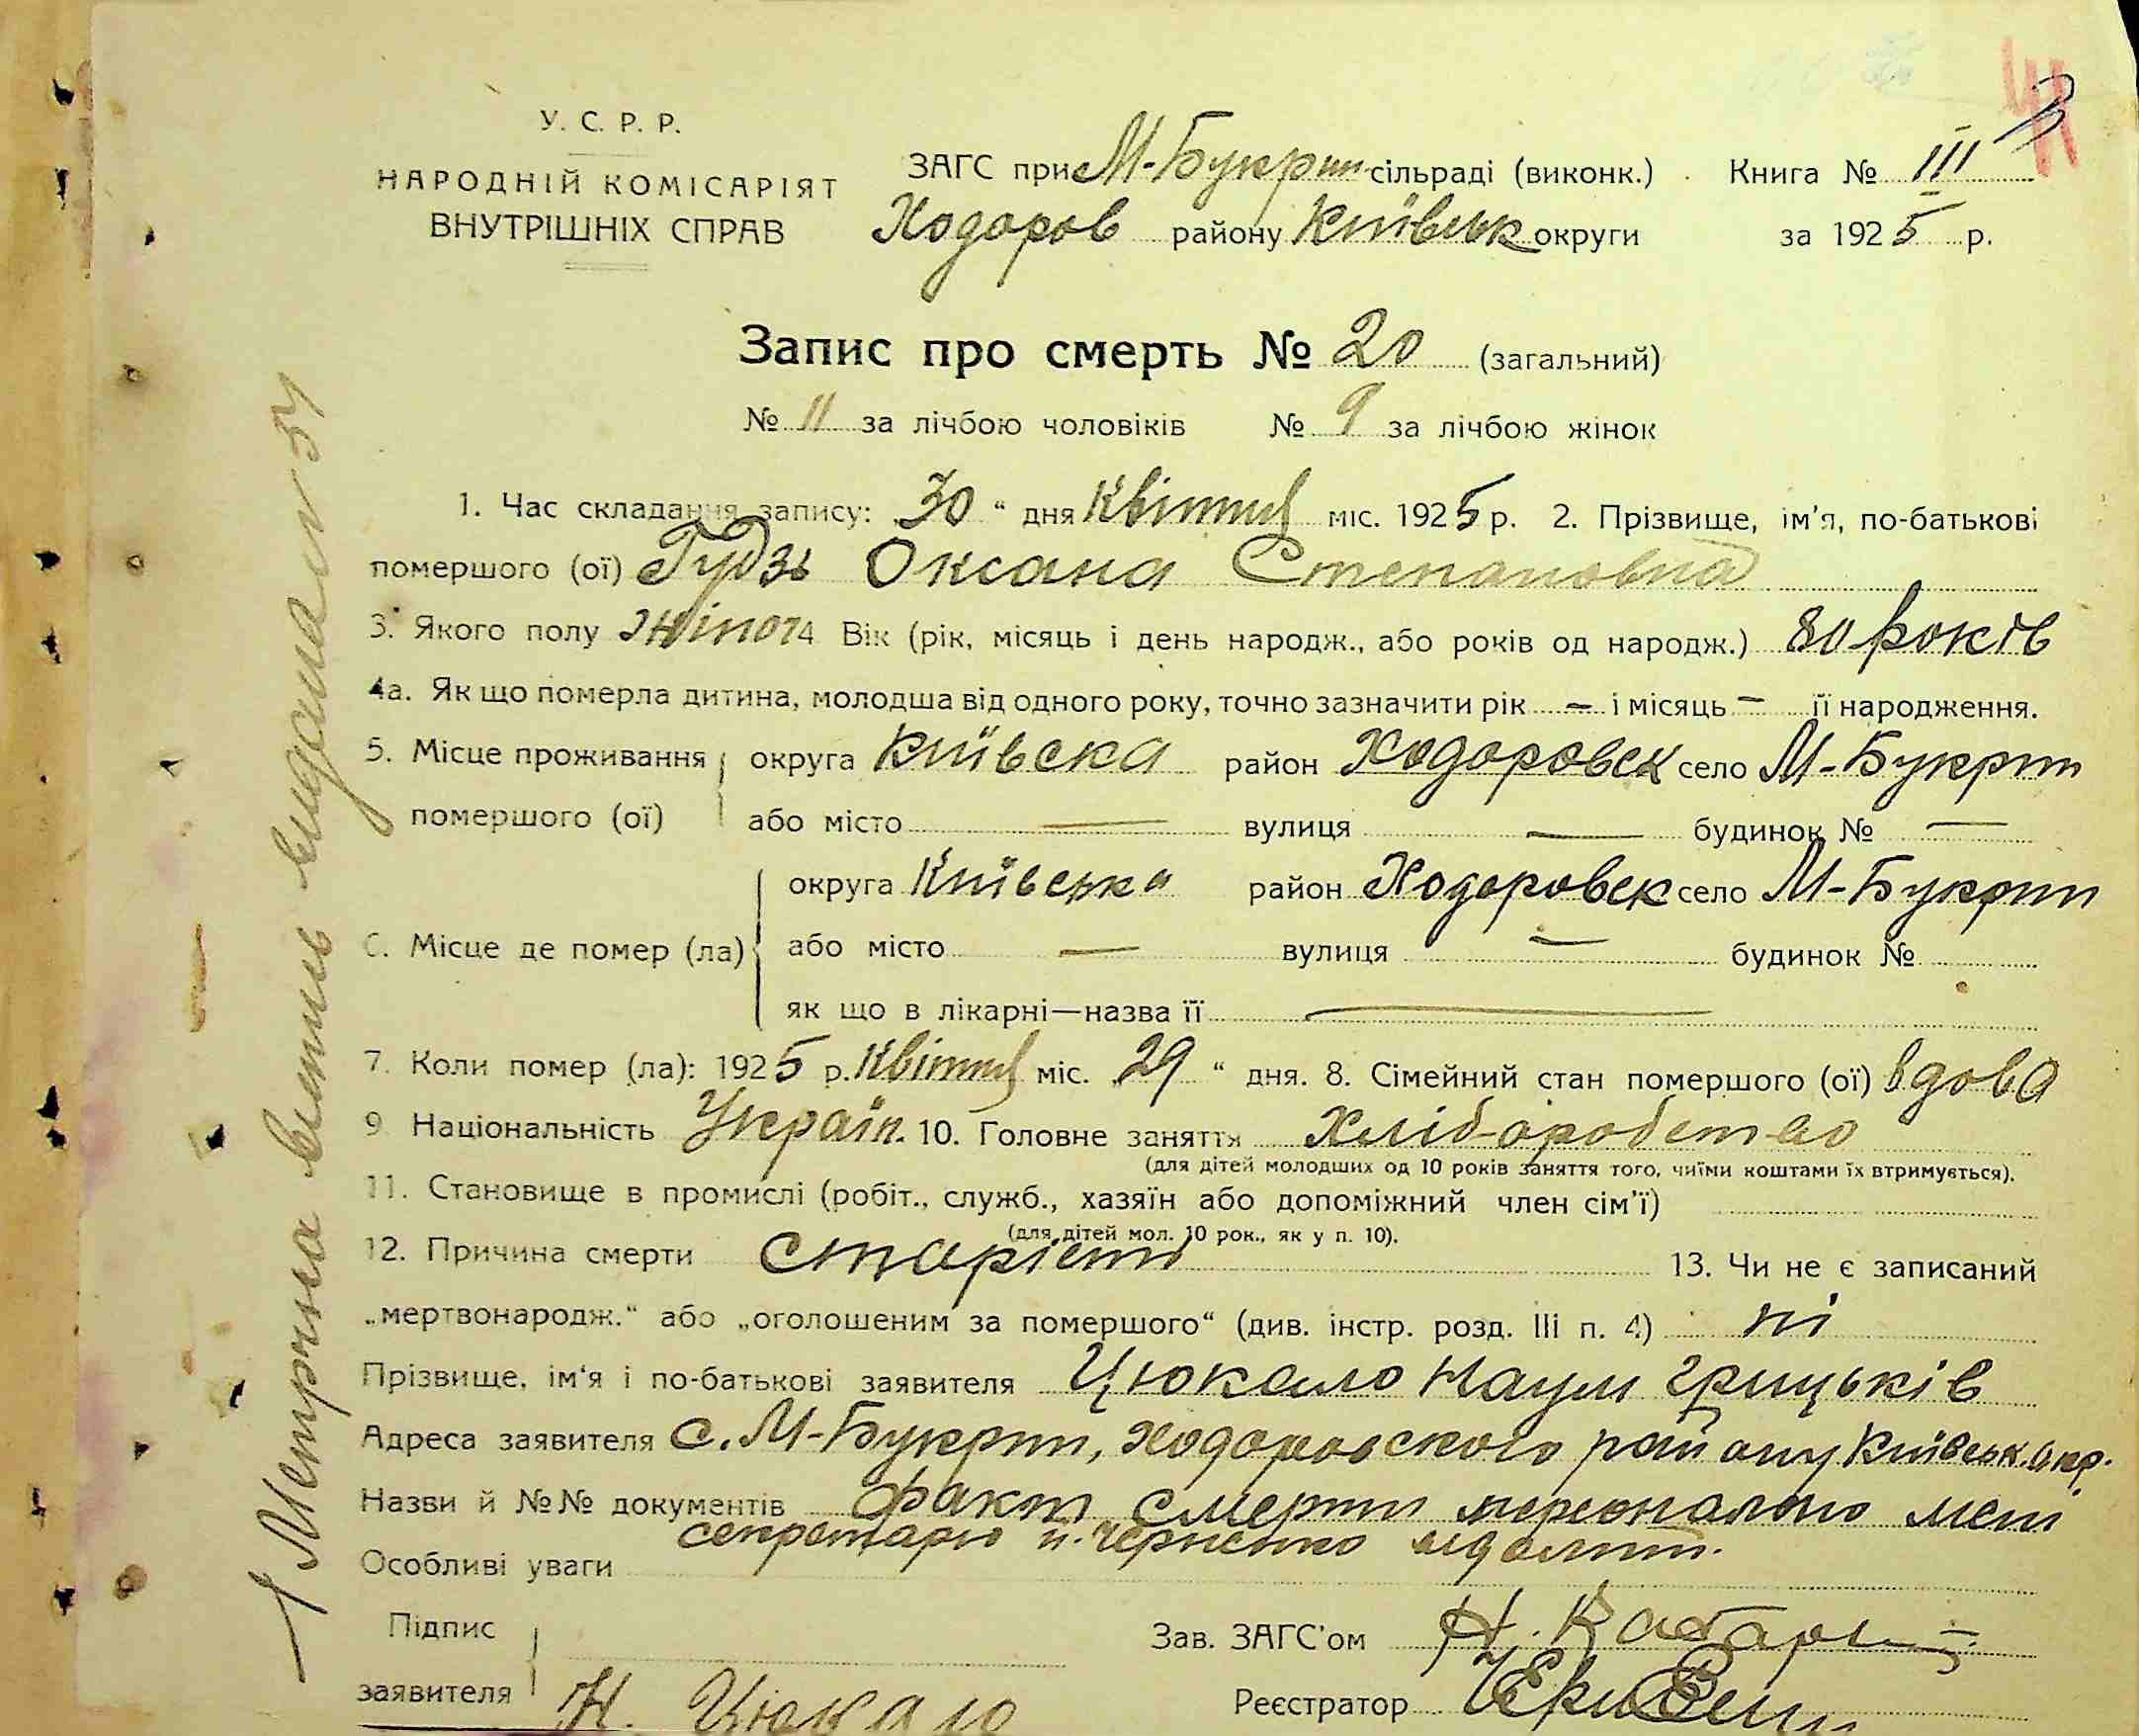 У. С. Р. Р.
НАРОДНІЙ КОМІСАРІЯТ
ВНУТРІШНІХ СПРАВ
ЗАГС при М-Букрин сільраді (виконк.) Книга № III
Ходоров району Київськ округи за 1925 р.
Запис про смерть № 20 (загальний)
№ 11 за лічбою чоловіків № 9 за лічбою жінок
1. Час складання запису: 30 " дня Квітня міс. 1925 р. 2. Прізвище, ім'я, по-батькові
помершого (ої) Гудзь Оксана Степановна
3. Якого полу жіноч Вік (рік, місяць і день народж., або років од народж.) 80 років
4а. Як що померла дитина, молодша від одного року, точно зазначити рік — і місяць — її народження.
5. Місце проживання округа Київска район Ходоровск село М-Букрин
помершого (ої) або місто — вулиця — будинок № —
округа Київська район Ходоровск село М-Букрин
6. Місце де помер (ла) або місто — вулиця — будинок №
як що в лікарні—назва її —
7. Коли помер (ла): 1925 р. Квітня міс. 29 " дня. 8. Сімейний стан помершого (ої) вдова
9 Національність Україн. 10. Головне заняття Хлібо-робство
(для дітей молодших од 10 років заняття того, чиїми коштами їх втримується).
11. Становище в промислі (робіт., служб., хазяїн або допоміжний член сім'ї)
(для дітей мол. 10 рок., як у п. 10).
12. Причина смерти старість 13. Чи не є записаний
„мертвонародж.“ або „оголошеним за помершого“ (див. інстр. розд. III п. 4) ні
Прізвище, ім'я і по-батькові заявителя Цюкало Наум Грицьків
Адреса заявителя с. М-Букрин, Ходоровского району Київськ. окр.
Назви й №№ документів факт смерти персонально мені
секретарю т. Черненко
Особливі уваги
Підпис
заявителя Н. Цюкало
Зав. ЗАГС'ом
Реєстратор
Метрична витись видана